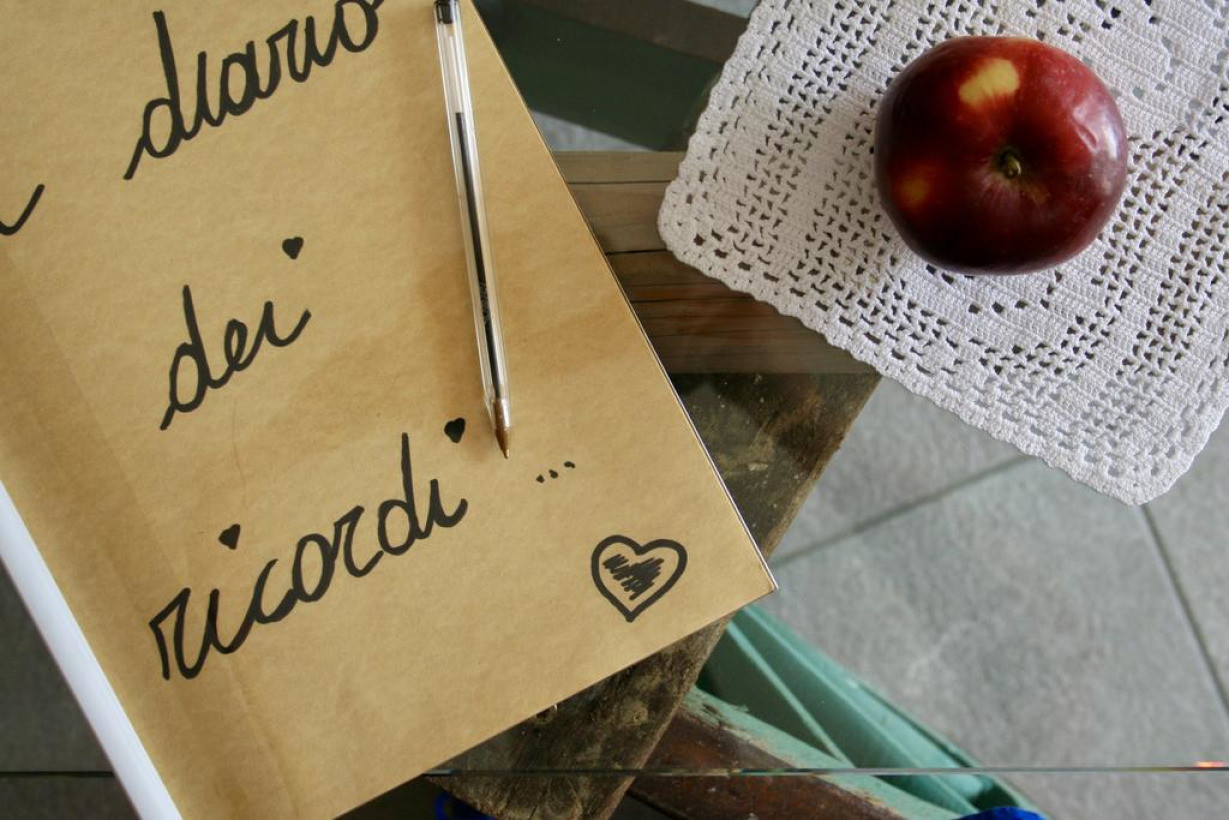 diario
dei
ricordi...